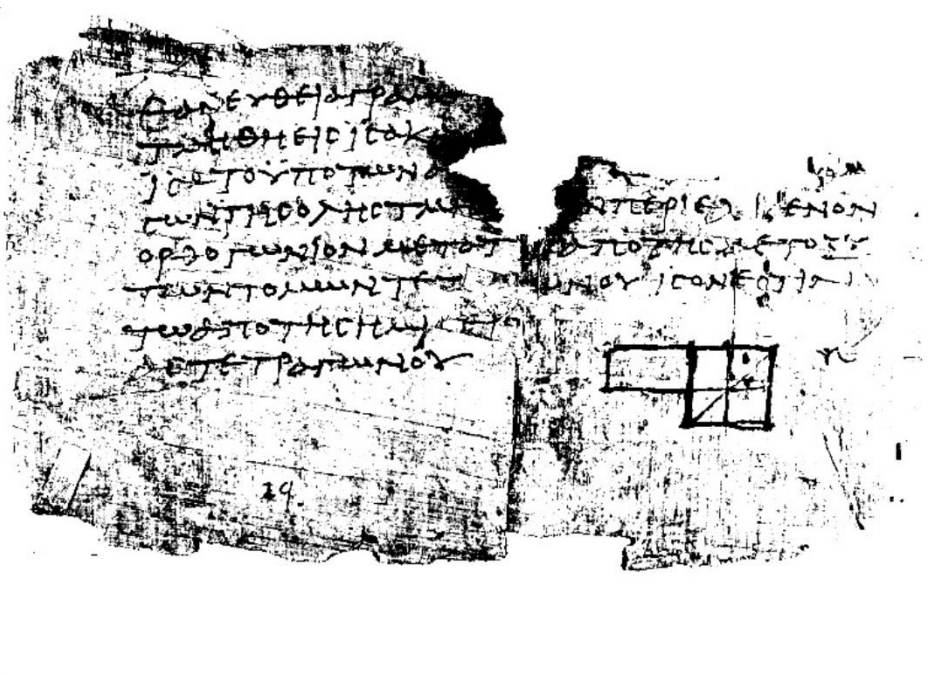 ΕΑΝ ΕΥΘΕΙΑ ΓΡΑΜ
ΤΜΗΘΗ ΕΙϹ ΙϹΑ Κ
ΙϹΑ ΤΟ ΥΠΟ ΤΩΝ Α
ϹΩΝ ΤΗϹ ΟΛΗϹ ΤΜΗ Ν ΠΕΡΙΕΧ ΜΕΝΟΝ
ΟΡΘΟΓΩΝΙΟΝ ΜΕΤΑ ΤΟΥ ΑΠΟ ΤΗϹ ΜΕΤΟΞΥ
ΤΩΝ ΤΟΜΩΝ ΤΕΤ ΩΝΟΥ ΙϹΟΝ ΕϹΤΙΝ
ΤΩ ΑΠΟ ΤΗϹ ΗΜΙϹ
ΤΕΤΡΑΓΩΝΟΥ
29